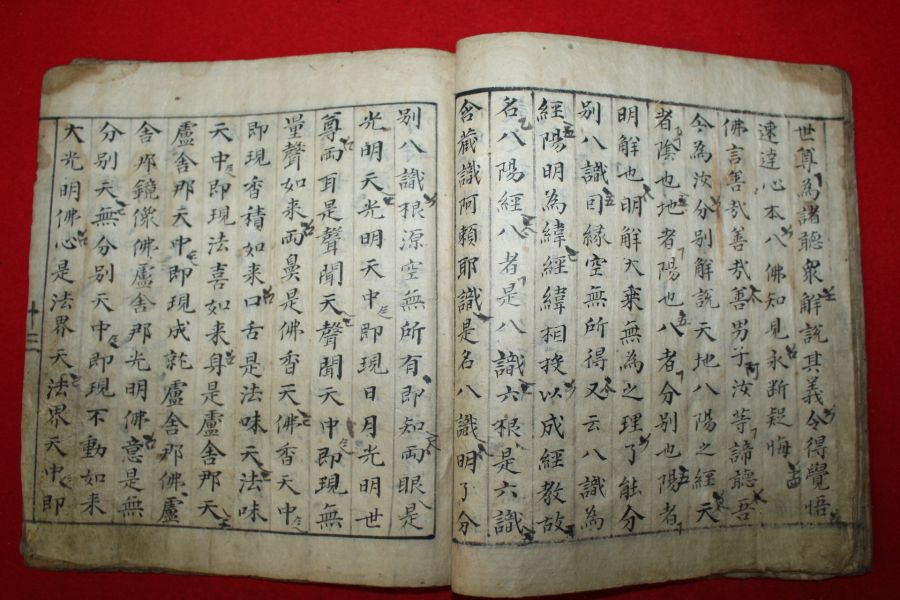 世尊為諸聽衆解說其義令得覺悟
速達心本八佛知見永断疑悔
佛言善哉善哉善男子汝等諦聽吾
今為汝分別解說天地八陽之經天
者陰也地者陽也八者分別也陽者
明解也明解大乘無為之理了能分
別八識因緣空無所得又云八識為
經陽明為緯經緯相投以成經教故
名八陽經八者是八識六根是六識
含藏識阿賴耶識是名八識明了分
別八識根源空無所有即知兩眼是
光明天光明天中即現日月光明世
尊兩耳是聲聞天聲聞天中即現無
量聲如來兩鼻是佛香天佛香天中
即現香積如來口舌是法味天法味
天中即現法喜如來身是盧舍那天
盧舍那天中即現成就盧舍那佛盧
舍那鏡像佛盧舍那光明佛意是無
分別天無分別天中即現不動如來
大光明佛心是法界天法界天中即
十二